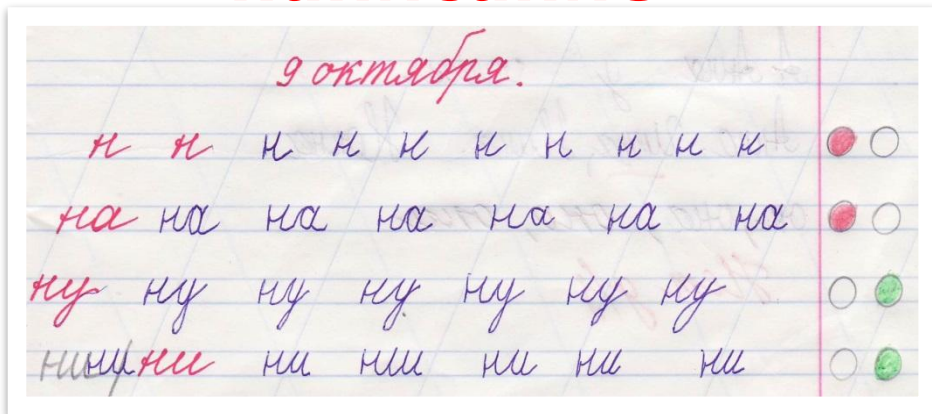 9 октября.
н н н н н н н н н н
на на на на на на на
ну ну ну ну ну ну ну
ни ни ни ни ни ни ни ни